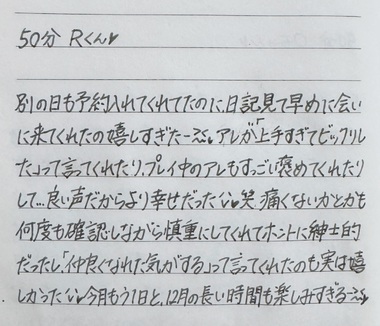 50分 Rくん♥
別の日も予約入れてくれてたのに、日記見て早めに会い
に来てくれたの嬉しすぎたー> <♥ アレが「上手すぎてビックリし
た」って言ってくれたり、プレイ中のアレもすっごい褒めてくれたり
して...良い声だからより幸せだったいい♥笑 痛くないかとかも
何度も確認しながら慎重にしてくれてホントに紳士的
だったし「仲良くなれた気がする」って言ってくれたのも実は嬉
しかったいい♥今月もう1日と、12月の長い時間も楽しみすぎる> <♥